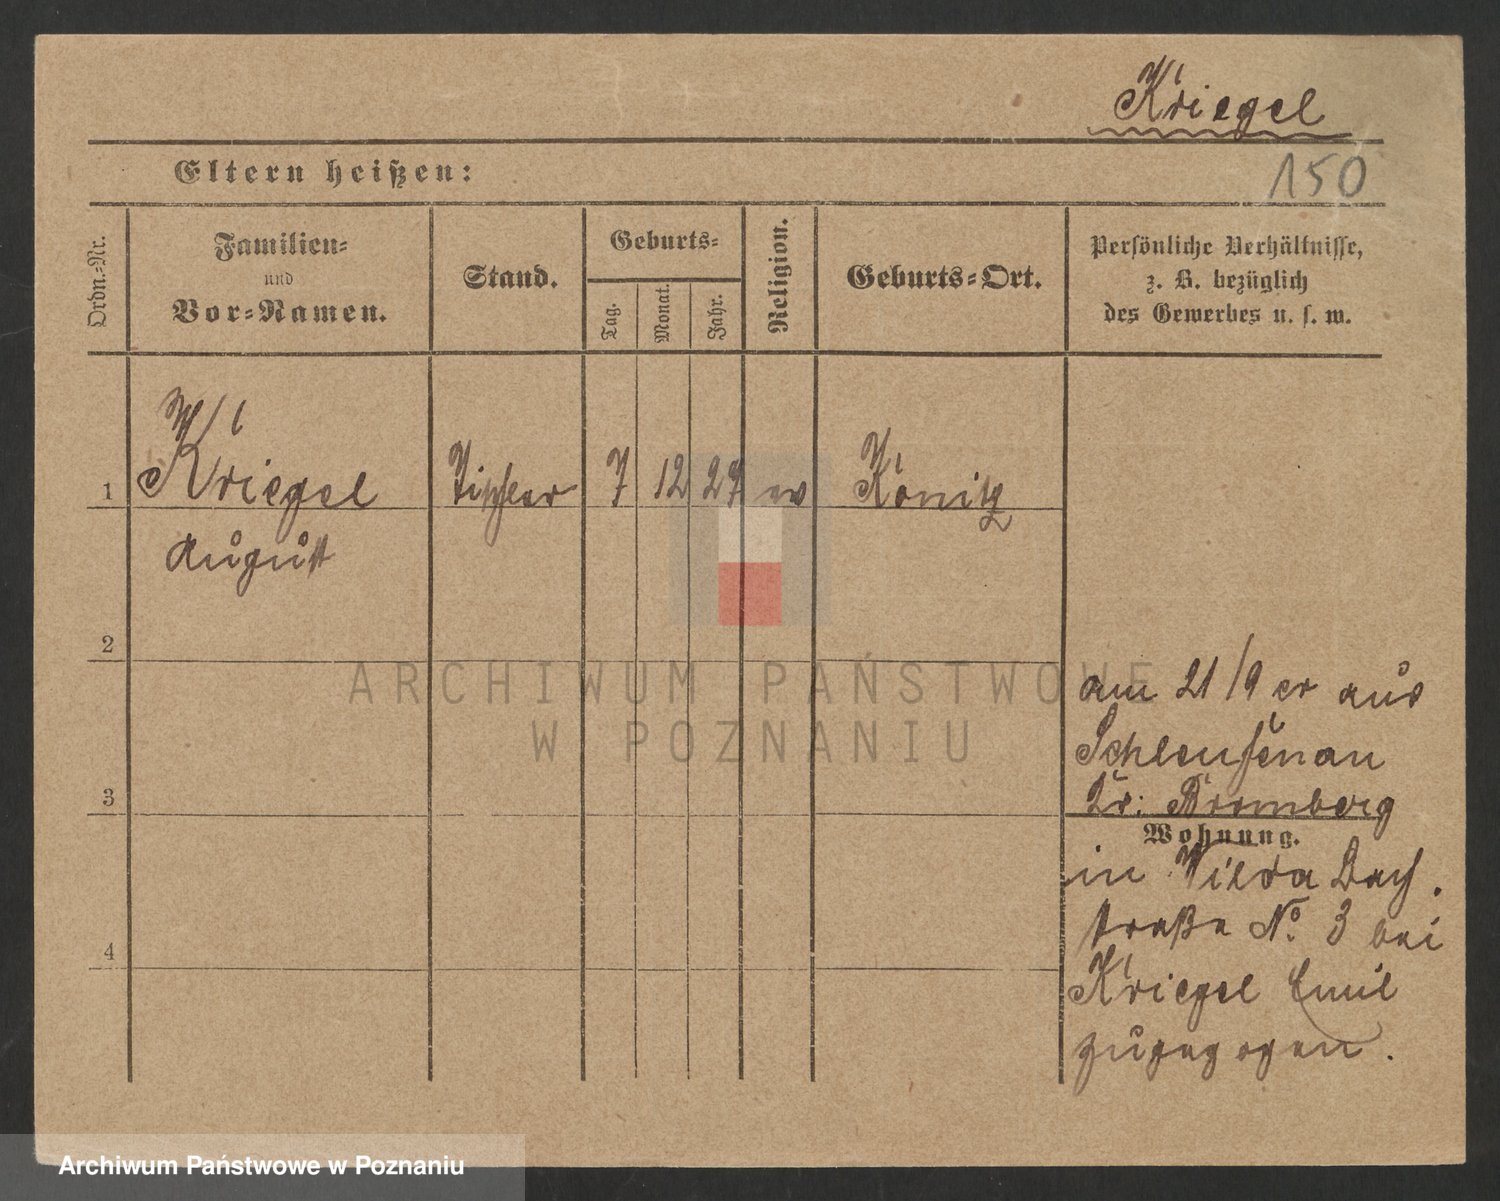 Kriegel
150
Eltern heißen:
Ordn.-Nr.
Familien-
und
Vor-Namen.
Stand.
Geburts-
Tag.
Monat.
Jahr.
Religion.
Geburts-Ort.
Persönliche Verhältnisse,
z. B. bezüglich
des Gewerbes u. s. w.
1
Kriegel
Tischler
7
12
27
ev
Konitz
August
2
am 21/9 cr aus
Schleusenau
3
Kr: Bromberg
Wohnung.
in Wilda Bach.
straße No. 3 bei
4
Kriegel Emil
zugezogen.
ARCHIWUM PAŃSTWOWE
W POZNANIU
Archiwum Państwowe w Poznaniu